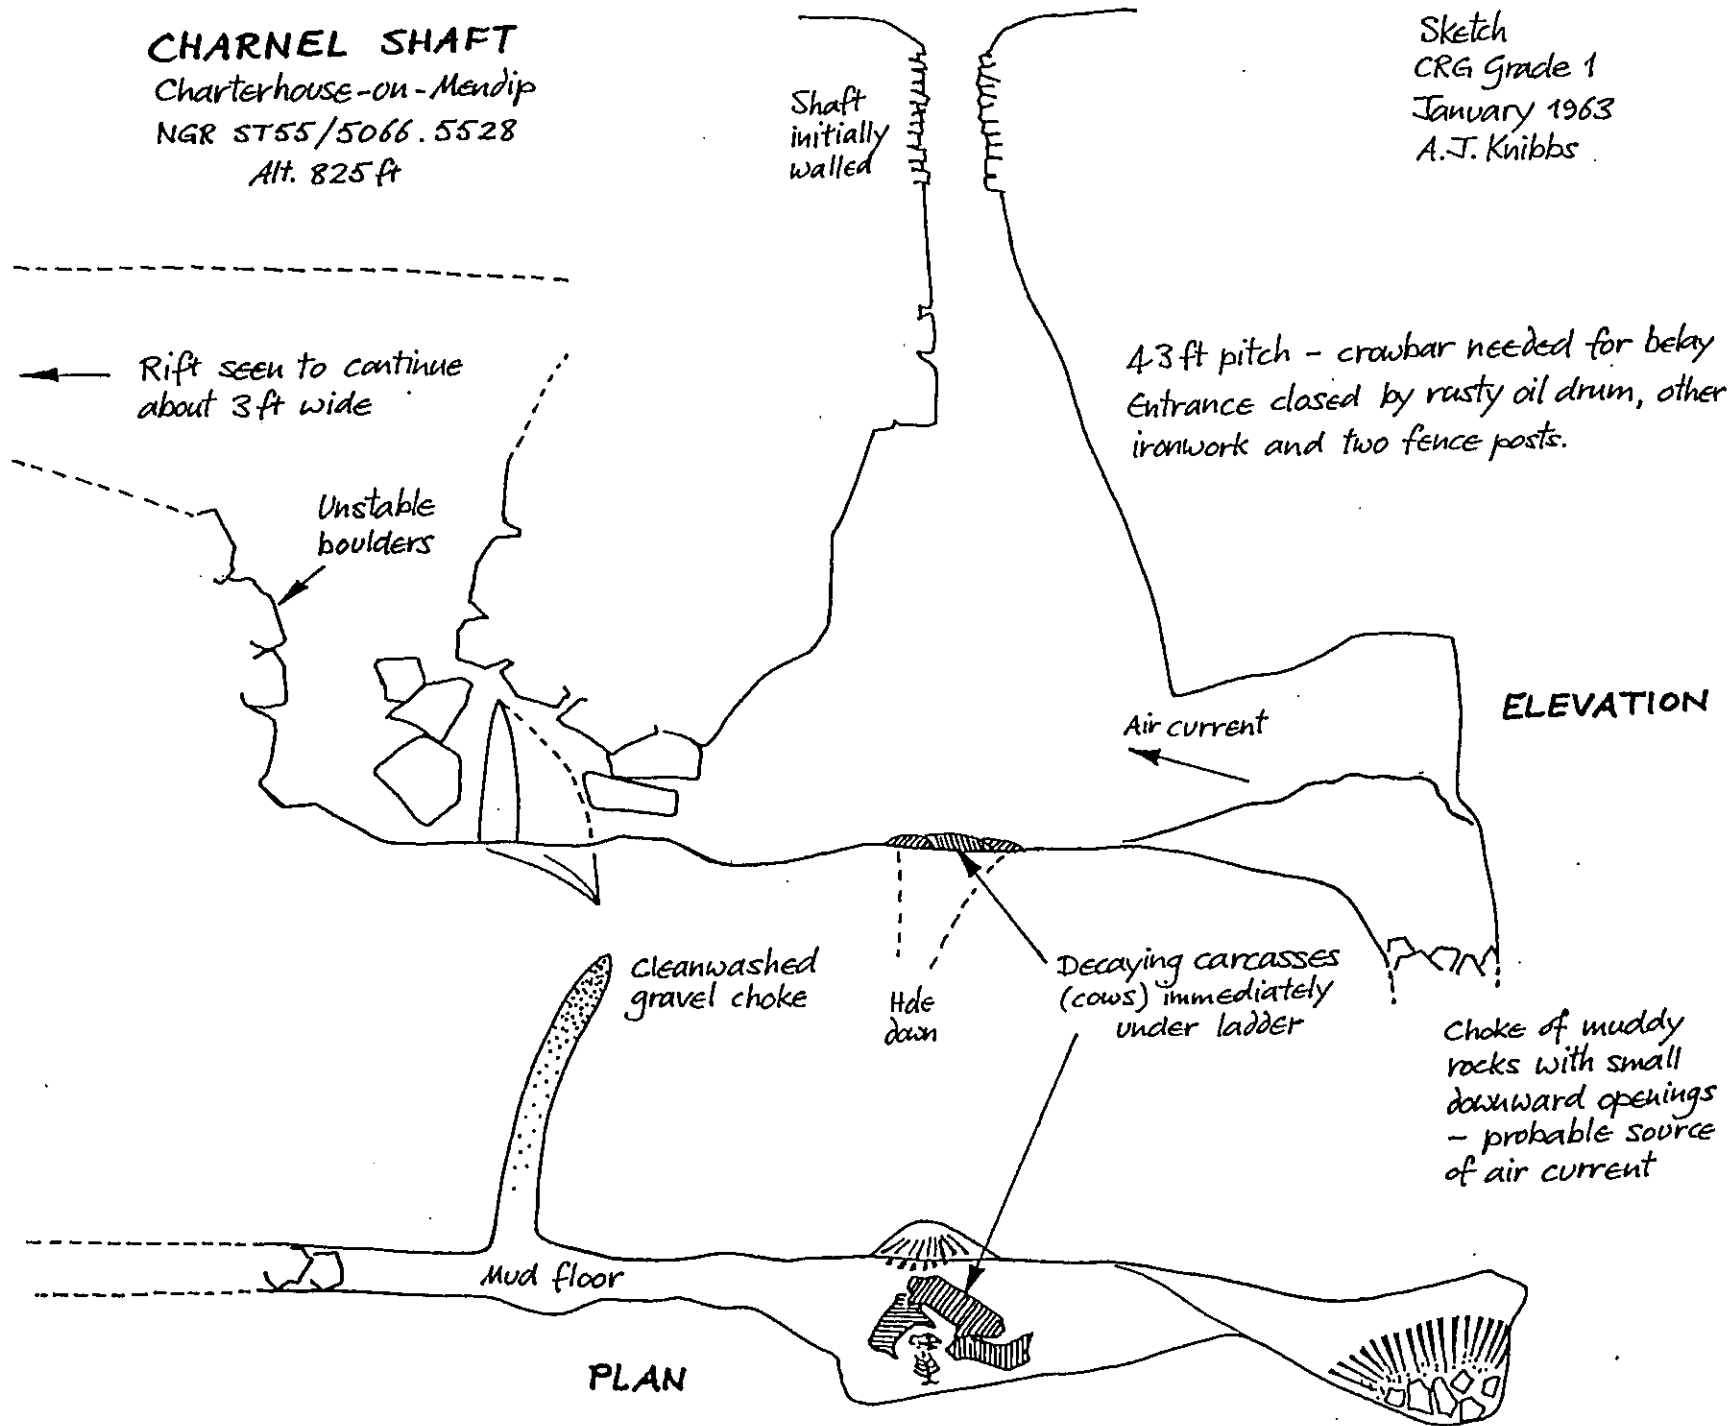 CHARNEL SHAFT
Charterhouse-on-Mendip
NGR ST55/5066.5528
Alt. 825 ft
Shaft
initially
walled
Sketch
CRG Grade 1
January 1963
A.J. Knibbs
Rift seen to continue
about 3 ft wide
43 ft pitch - crowbar needed for belay
Entrance closed by rusty oil drum, other
ironwork and two fence posts.
Unstable
boulders
ELEVATION
Air current
Cleanwashed
gravel choke
Hole
down
Decaying carcasses
(cows) immediately
under ladder
Choke of muddy
rocks with small
downward openings
- probable source
of air current
Mud floor
PLAN